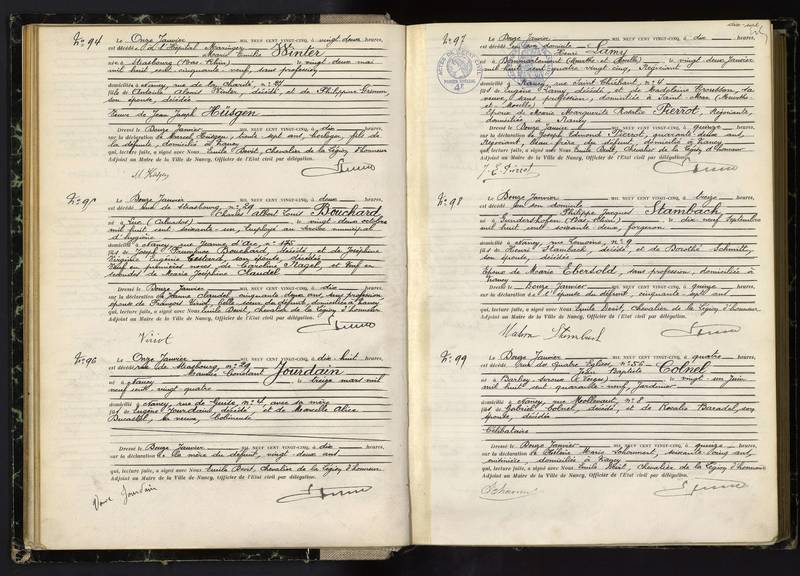 N: 94 Le Onze Janvier MIL NEUF CENT VINGT-CINQ, à vingt deux heures,
est décédée à l'Hôpital
Marie Emilie Winter
née à Strasbourg (Bas-Rhin) le vingt deux mai
mil huit cent cinquante-neuf, sans profession
domiciliée à Nancy, rue de la Charité, n: 21
fille de Winter, décédé, et de Philippine
son épouse, décédée
Veuve de Jean Joseph Hüsgen
Dressé le Douze Janvier MIL NEUF CENT VINGT-CINQ, à dix heures,
sur la déclaration de Marcel Hüsgen, trente sept ans, horloger, fils de
la défunte, domicilié à Nancy
qui, lecture faite, a signé avec Nous Emile Boit, Chevalier de la Légion d'honneur
Adjoint au Maire de la Ville de Nancy, Officier de l'Etat civil par délégation.
M Hüsgen
N: 95 Le Douze Janvier MIL NEUF CENT VINGT-CINQ, à deux heures,
est décédé rue de Strasbourg, n: 29
Charles Albert Louis Bouchard
né à Luc (Calvados) le vingt deux octobre
mil huit cent soixante-six, Employé au service municipal
d'hygiène
domicilié à Nancy, rue Jeanne d'Arc, n: 175
fils de Joseph Bouchard, décédé, et de Joséphine
Virginie Eugénie son épouse, décédée
Veuf en premières noces de Caroline Nagel, et Veuf en
secondes de Marie Joséphine Claudel
Dressé le Douze Janvier MIL NEUF CENT VINGT-CINQ, à dix heures,
sur la déclaration de Jeanne Claudel, cinquante deux ans, sans profession
épouse de François Viriot, belle-sœur du défunt, domiciliée à Nancy
qui, lecture faite, a signé avec Nous Emile Boit, chevalier de la Légion d'honneur
Adjoint au Maire de la Ville de Nancy, Officier de l'Etat civil par délégation.
Viriot
N: 96 Le Onze Janvier MIL NEUF CENT VINGT-CINQ, à dix huit heures,
est décédé rue de Strasbourg, n: 29
Maurice Constant Jourdain
né à Nancy le treize mars mil
neuf cent vingt quatre
domicilié à Nancy, rue de Guise, n: 4, avec sa mère
fils de Eugène Jourdain, décédé, et de Marcelle Alice
sa veuve,
Dressé le Douze Janvier MIL NEUF CENT VINGT-CINQ, à dix heures,
sur la déclaration de la mère du défunt, vingt deux ans
qui, lecture faite, a signé avec Nous Emile Boit, Chevalier de la Légion d'honneur
Adjoint au Maire de la Ville de Nancy, Officier de l'Etat civil par délégation.
Veuve Jourdain
N: 97 Le Douze Janvier MIL NEUF CENT VINGT-CINQ, à dix heures,
est décédé en son domicile
Henri Lamy
né à Dommartemont (Meurthe et Moselle) le vingt deux Janvier
mil huit cent quatre-vingt cinq, Négociant
domicilié à Nancy, rue Saint Thiébaut, n: 4
fils de Eugène Lamy, décédé, et de Madeleine sa
veuve, sans profession, domiciliée à Saint Max (Meurthe
et Moselle)
Epoux de Marie Marguerite Pierrot, Négociante,
domiciliée à Nancy
Dressé le Douze Janvier MIL NEUF CENT VINGT-CINQ, à quinze heures,
sur la déclaration de Joseph Edmond Pierrot, quarante deux ans,
Négociant, beau-frère du défunt, domicilié à Nancy
qui, lecture faite, a signé avec Nous Emile Boit, Chevalier de la Légion d'honneur
Adjoint au Maire de la Ville de Nancy, Officier de l'Etat civil par délégation.
J. E. Pierrot
N: 98 Le Douze Janvier MIL NEUF CENT VINGT-CINQ, à treize heures,
est décédé en son domicile
Philippe Jacques Stambach
né à Gundershoffen (Bas-Rhin) le dix neuf Septembre
mil huit cent soixante deux, forgeron
domicilié à Nancy, rue Lemoine, n: 9
fils de Henri Stambach, décédé, et de Dorothé Schmitt,
son épouse, décédée
Epoux de Marie Ebersold, sans profession, domiciliée à
Nancy
Dressé le Douze Janvier MIL NEUF CENT VINGT-CINQ, à quinze heures,
sur la déclaration de l'épouse du défunt, cinquante sept ans
qui, lecture faite, a signé avec Nous Emile Boit, Chevalier de la Légion d'honneur
Adjoint au Maire de la Ville de Nancy, Officier de l'Etat civil par délégation.
N: 99 Le Douze Janvier MIL NEUF CENT VINGT-CINQ, à quatre heures,
est décédé rue des Quatre Eglises, n: 56
Jean Baptiste Colnel
né à Barbey-Seroux (Vosges) le vingt-six Juin
mil huit cent quarante-neuf, Jardinier
domicilié à Nancy, rue n: 8
fils de Gabriel Colnel, décédé, et de Rosalie son
épouse, décédée
Célibataire
Dressé le Douze Janvier MIL NEUF CENT VINGT-CINQ, à quinze heures,
sur la déclaration de Marie soixante cinq ans,
domiciliée à Nancy
qui, lecture faite, a signé avec Nous Emile Boit, Chevalier de la Légion d'honneur
Adjoint au Maire de la Ville de Nancy, Officier de l'Etat civil par délégation.